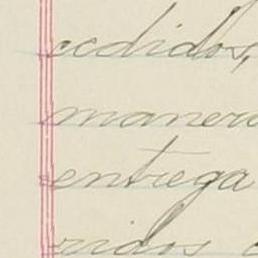 cedidos,
manera
entrega
ridos